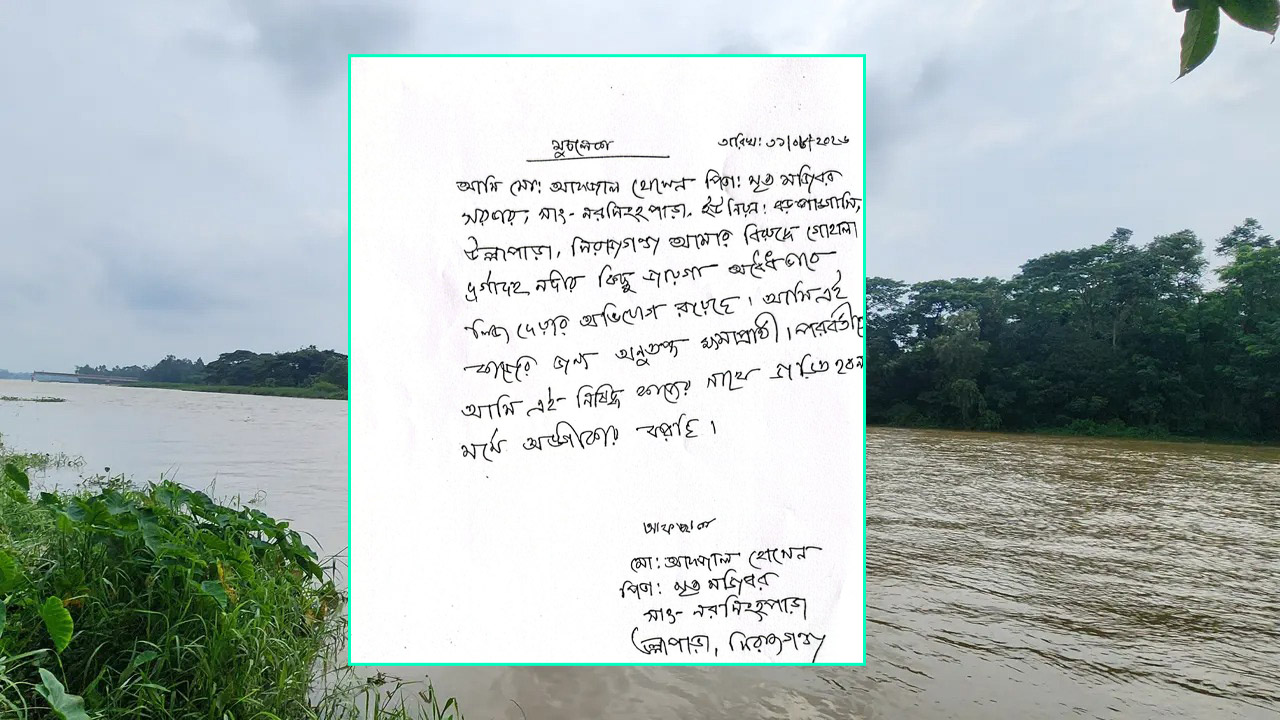 মুচলেকা
তারিখ: ৩১/০৮/২০২৬
আমি মো: আফজাল হোসেন পিতা: মৃত মজিবর
সরকার, সাং- নরসিংহপাড়া, ইউনিয়ন: বড়পাঙ্গাসি,
উল্লাপাড়া, সিরাজগঞ্জ আমার বিরুদ্ধে গোহালা
নদীর কিছু জায়গা অবৈধভাবে
লিজ দেওয়ার অভিযোগ রয়েছে। আমি এই
কাজের জন্য অনুতপ্ত ক্ষমাপ্রার্থী। পরবর্তীতে
আমি এই নিষিদ্ধ কাজের সাথে জড়িত হবনা
মর্মে অঙ্গীকার করছি।
আফজাল
মো: আফজাল হোসেন
পিতা: মৃত মজিবর
সাং- নরসিংহপাড়া
উল্লাপাড়া, সিরাজগঞ্জ